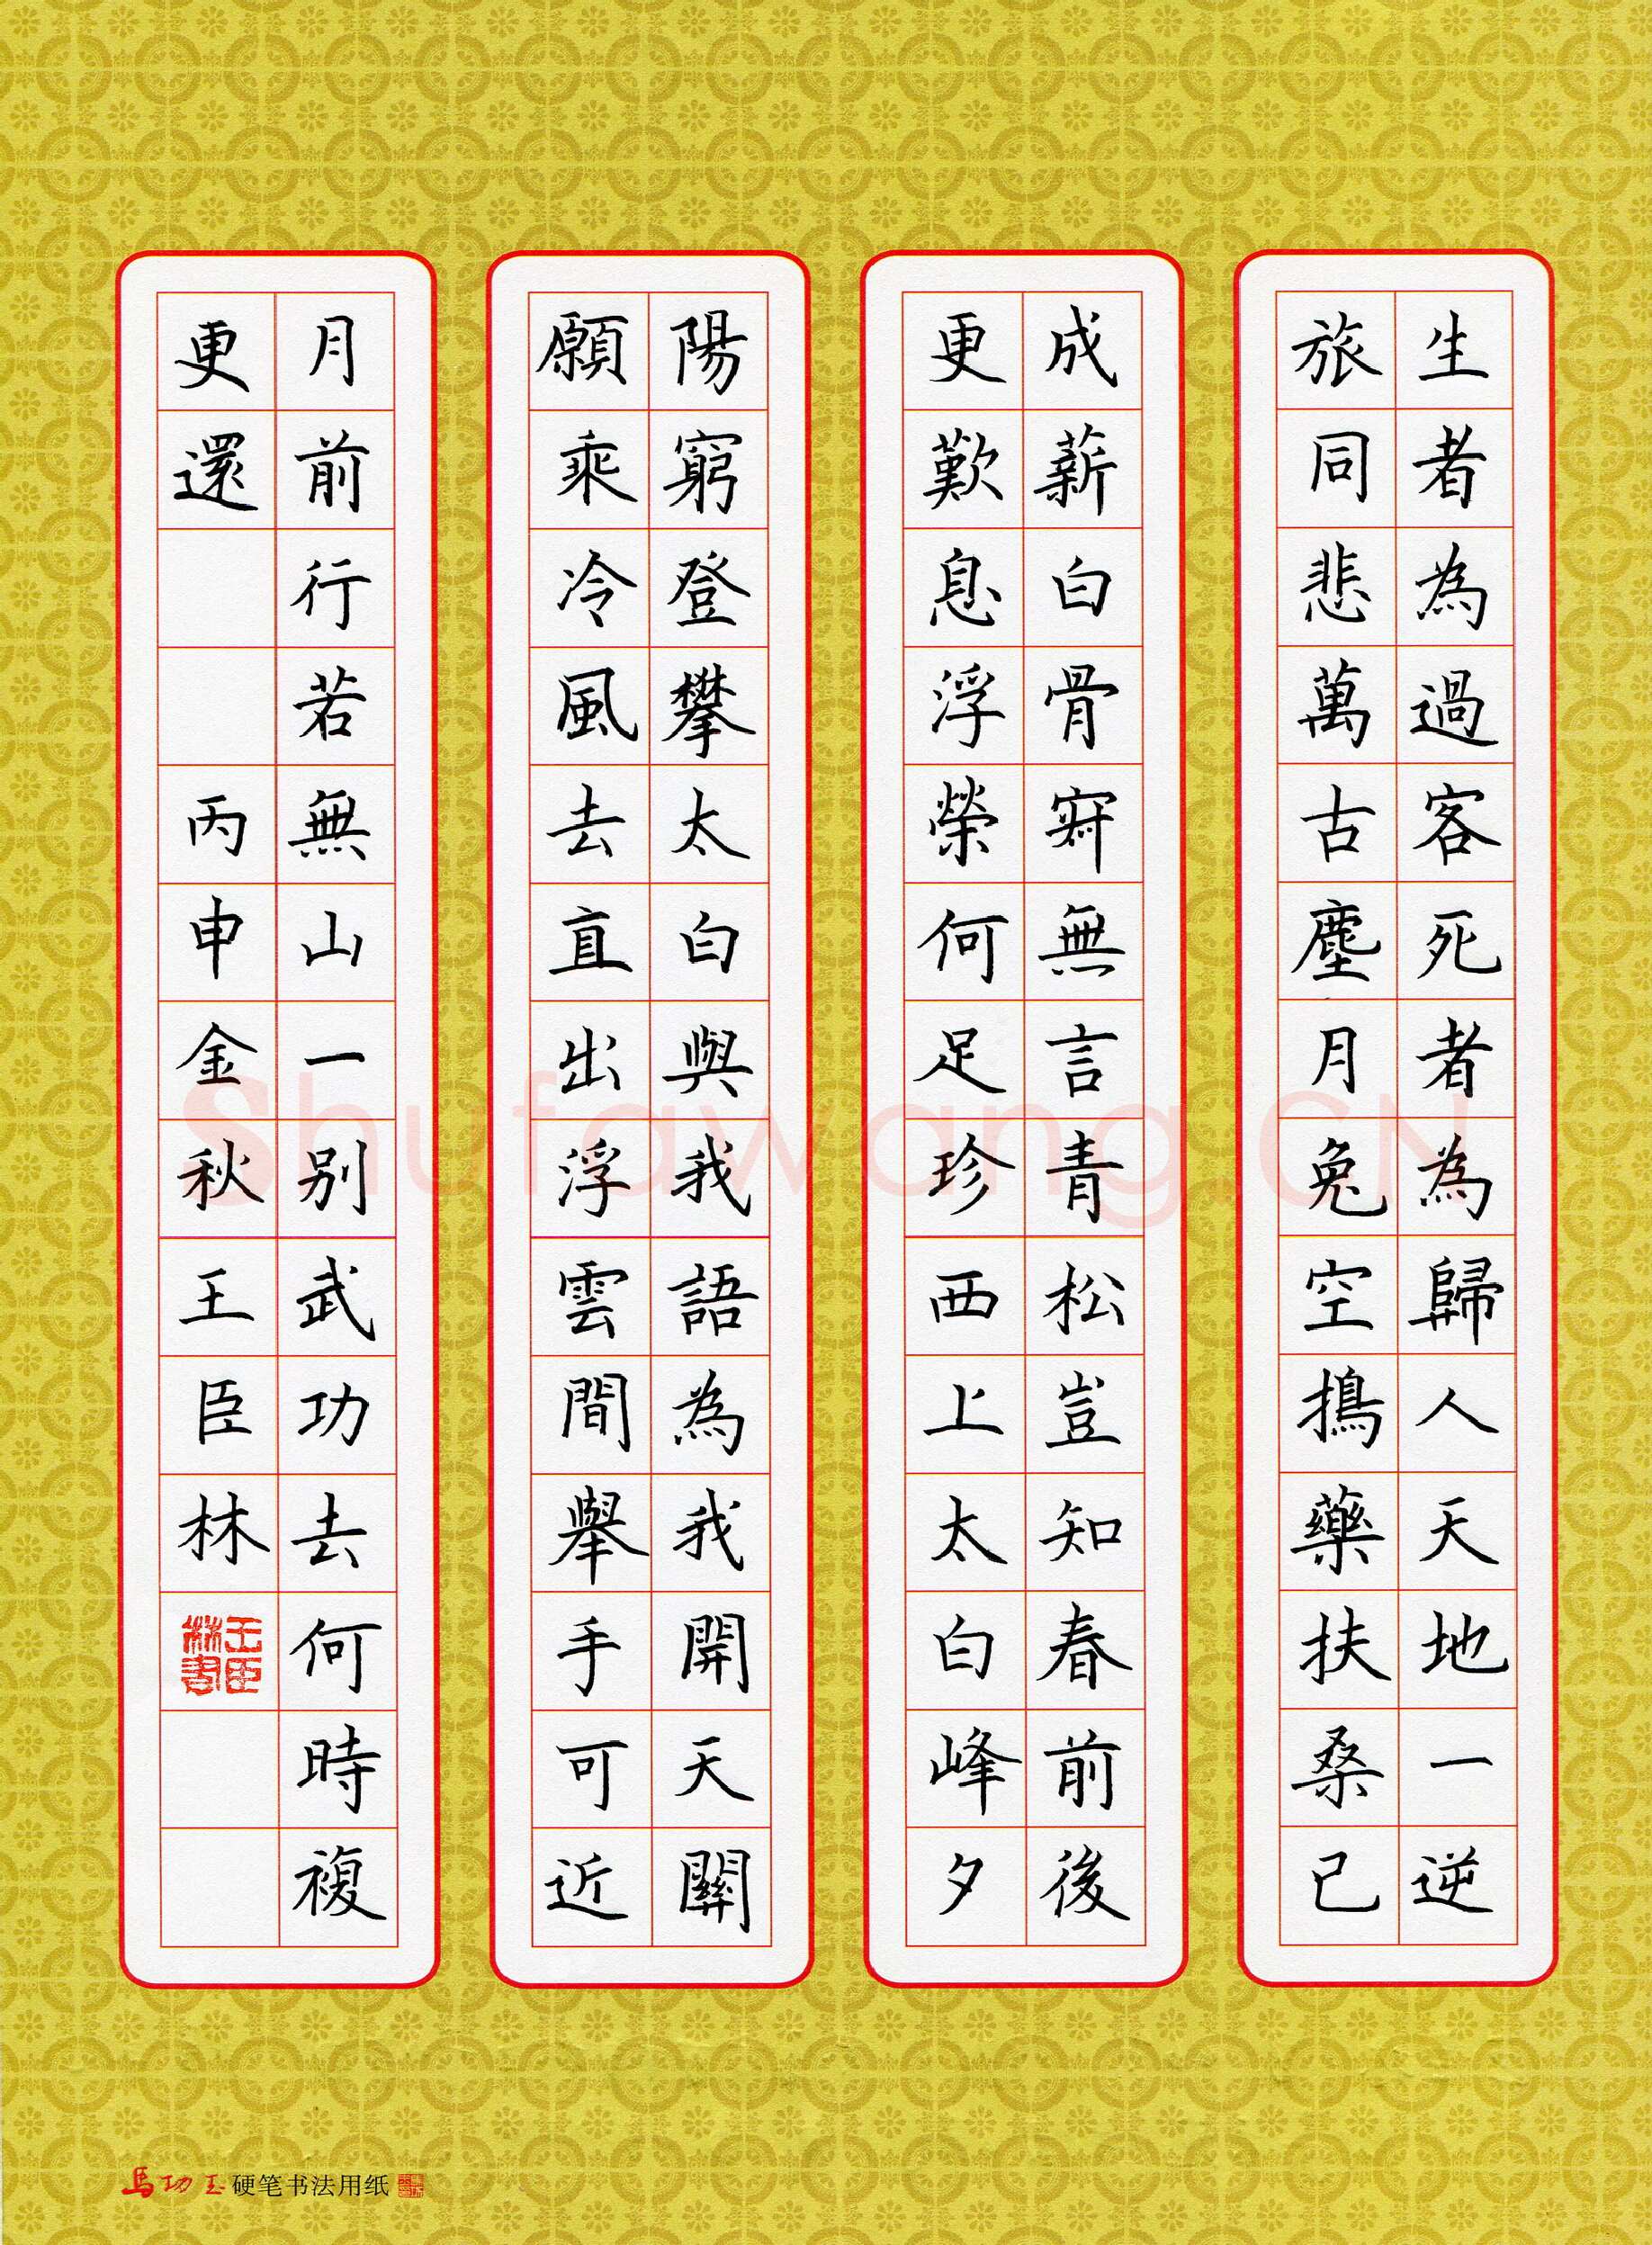 生者為過客死者為歸人天地一逆
旅同悲萬古塵月兔空搗藥扶桑已
成薪白骨寂無言青松豈知春前後
更歎息浮榮何足珍西上太白峰夕
陽窮登攀太白與我語為我開天關
願乘冷風去直出浮雲間舉手可近
月前行若無山一别武功去何時複
更還
丙申金秋王臣林
王臣林書
馬功玉硬笔书法用纸
Shufawang.CN